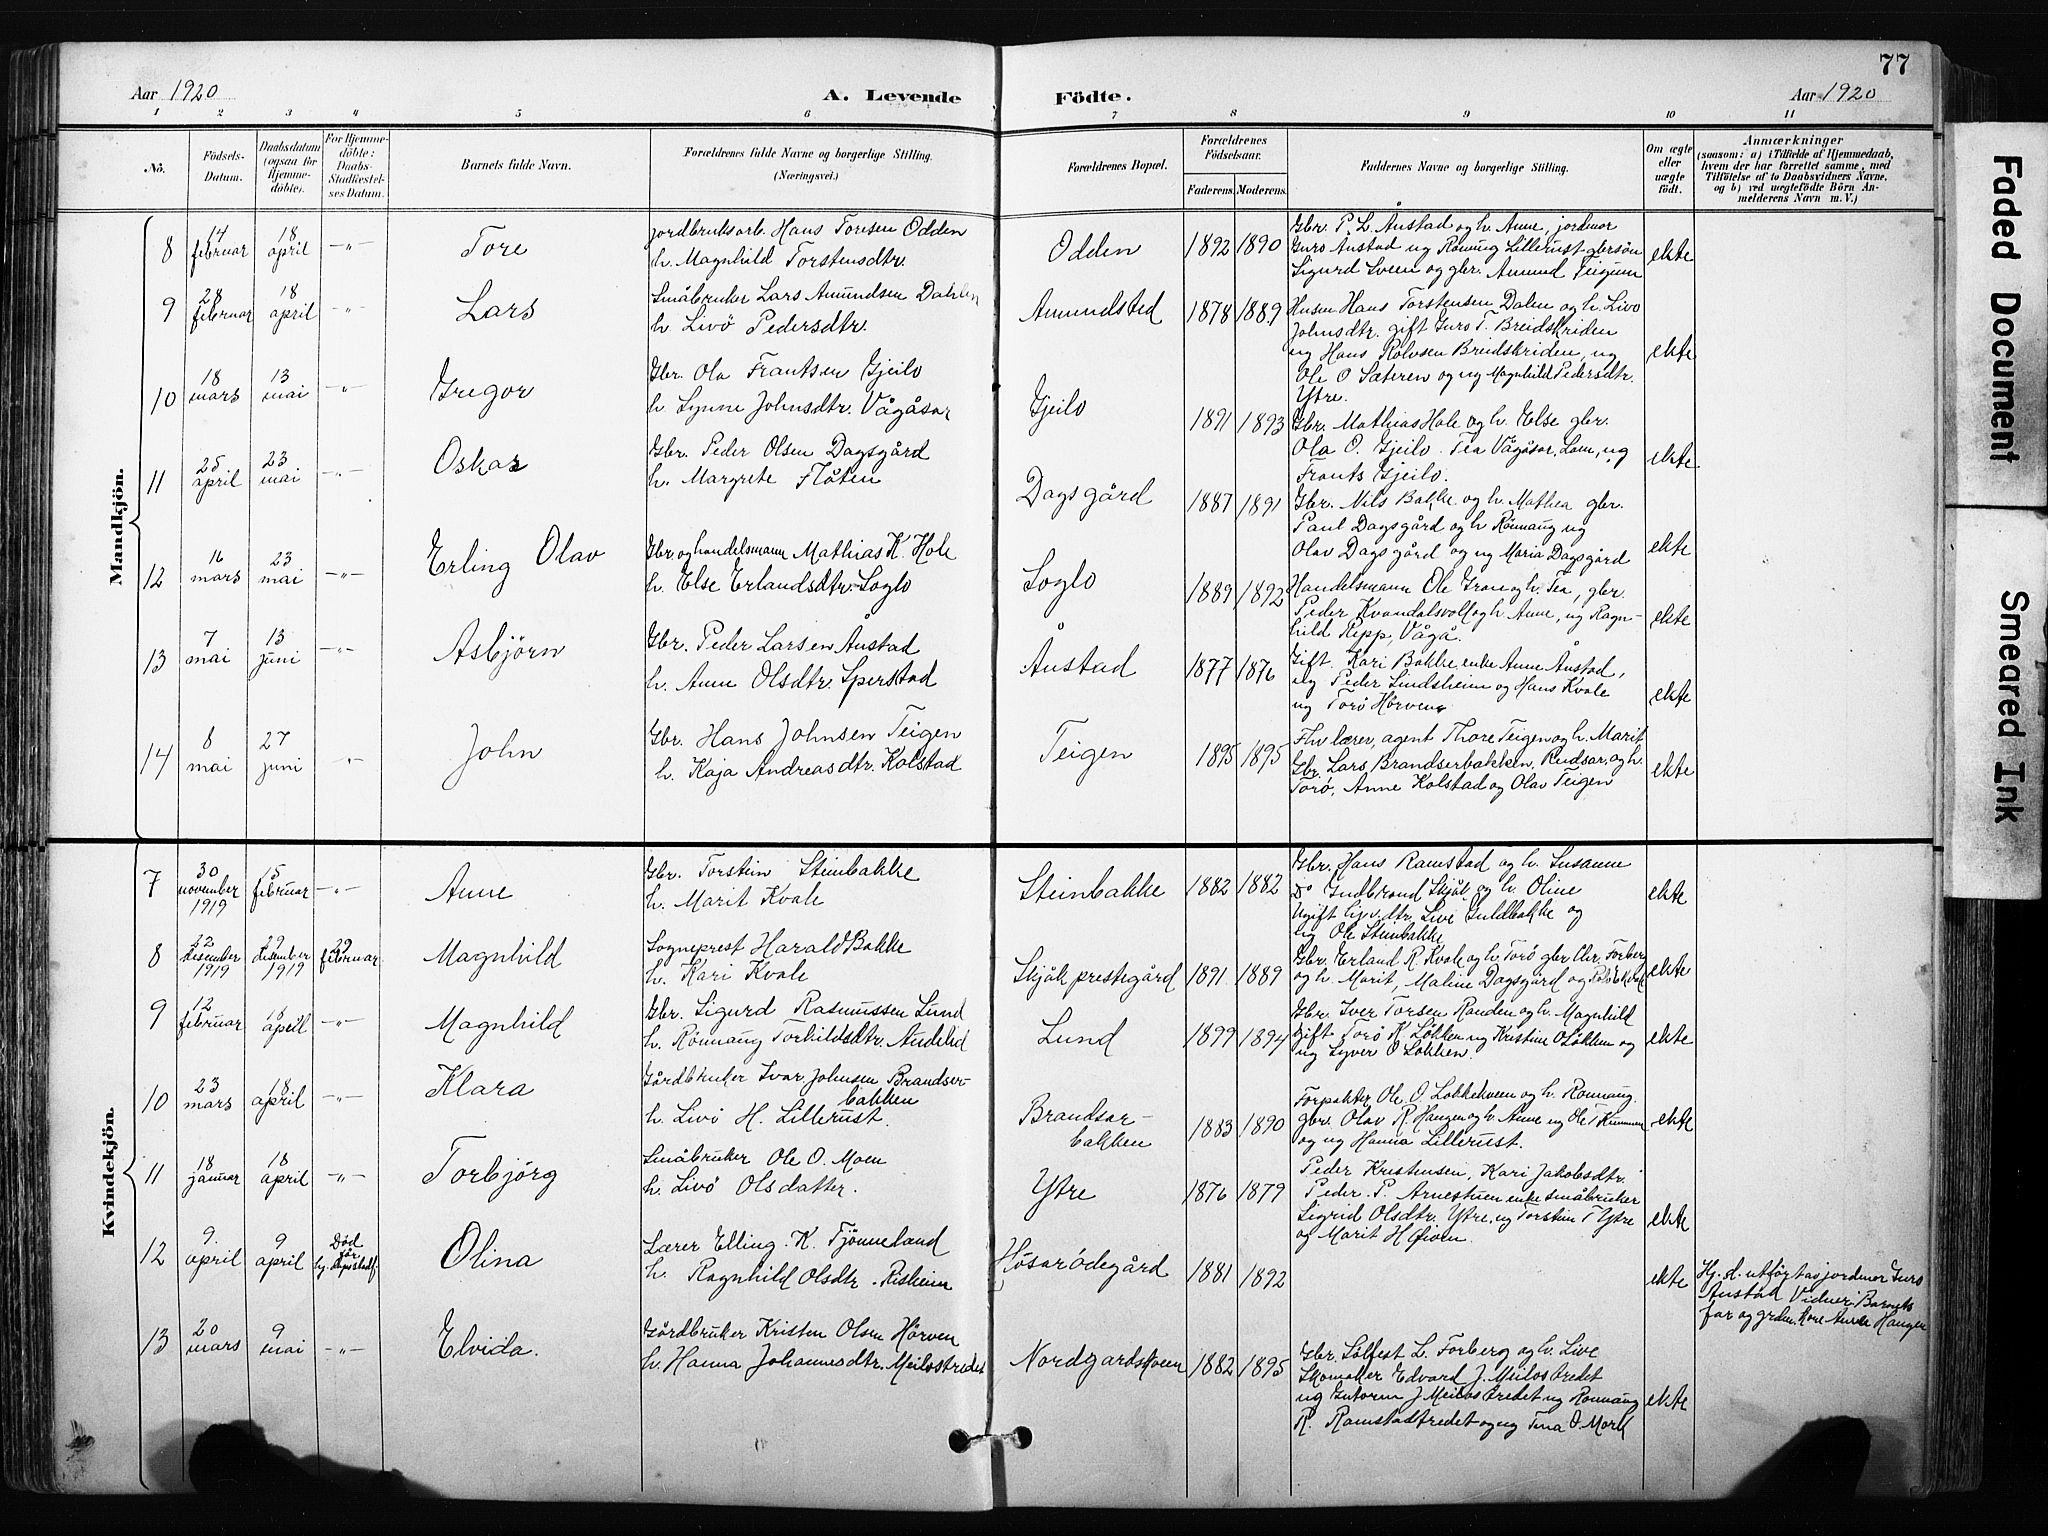 77
Aar 1920
A. Levende
Födte.
Aar 1920
1 2 3 4 5 6 7 8 9 10 11
No.
Födsels-Datum.
Daabsdatum (ogsaa for Hjemme-döbte).
For Hjemme-döbte: Daabs-Stadfæstel-ses Datum.
Barnets fulde Navn.
Forældrenes fulde Navne og borgerlige Stilling.
(Næringsvei.)
Forældrenes Bopæl.
Forældrenes Födselsaar.
Faderens. Moderens.
Faddernes Navne og borgerlige Stilling.
Om ægte eller uægte födt.
Anmærkninger
(saasom: a) i Tilfælde af Hjemmedaab,
hvem der har forrettet samme, med
Tilföielse af to Daabsvidners Navne,
og b) ved uægtefödte Börn An-
melderens Navn m. V.)
Mandkjön.
8 14 februar 18 april -„- Tore
jordbruksarb. Hans Toresen Odden
h. Magnhild Torstensdtr.
Odden 1892 1890
Gbr. P. L. Åustad og h. Anne, jordmor
Guro Åustad ug Rönnug Lillerust gbrsön
Sigurd Sveen og gbr. Amund Teigum
ekte
9 28 februar 18 april -„- Lars
Småbruker Lars Amundsen Dahlen
h. Livö Pedersdtr.
Amundsted 1878 1889
Husm Hans Torstensen Dalen og h. Livo
Johnsdtr. gift Guro T. Breidskriden
ug Hans Rolvsen Breidskriden, ug
Ole O Sæteren og ug Magnhild Pedersdtr.
Ytre.
ekte
10 18 mars 13 mai -„- Gregor
Gbr. Ola Frantsen Gjeilo
h. Synne Johnsdtr. Vågåsar
Gjeilo 1891 1893
Gbr. Mathias Hole og h. Else gbr.
Ola O. Gjeilo. Tea Vågåsar, Lom, ug
Frants Gjeilo.
ekte
11 25 april 23 mai -„- Oskar
Gbr. Peder Olsen Dagsgård
h. Margrete Flåten
Dagsgård 1887 1891
Gbr. Nils Bakke og h. Mathea gbr.
Paul Dagsgård og h Rönnaug ug
Olav Dagsgård og ug Maria Dagsgård
ekte
12 16 mars 23 mai -„- Erling Olav
Gbr og handelsmann Mathias K. Hole
h. Else Erlandsdtr. Soglo
Soglo 1889 1892
Handelsmann Ole Grone og h. Tea, gbr.
Peder Kvandalsvoll og h. Anne, ug Ragn-
hild Repp, Vågå.
ekte
13 7 mai 13 juni -„- Asbjörn
Gbr. Peder Larsen Åustad
h. Anne Olsdtr. Sperstad
Åustad 1877 1876
Gift. Kari Bakke, enke Anne Åustad,
ug Peder Lindsheim og Hans Kvale
ug Torö Hörven
ekte
14 8 mai 27 juni „ John
Gbr. Hans Johnsen Teigen
h. Kaja Andreasdtr. Kolstad
Teigen 1895 1895
Fhv lærer, agent Thore Teigen og h. Marit
Gbr. Lars Brandserbakken, Rudsar, og h.
Torø, Anne Kolstad og Olav Teigen
ekte
Kvindekjön.
7 30 november 1919 15 februar -„- Anne
Gbr. Torstein Steinbakke
h. Marit Kvale
Steinbakke 1882 1882
Gbr. Hans Ramstad og h. Susanne
Do Gudbrand Skjåk og h. Oline
Ugift lig. v. dtr. Live Guldbakke og
ug Ole Steinbakke
ekte
8 12 desember 1919 29 desember 1919 29 februar Magnhild
Sogneprest Harald Bakke
h. Kari Kvale
Skjåk prestegård 1891 1889
Gbr. Erland R. Kvale og h. Torö gbr Chr. Forberg
og h. Marit, Maline Dagsgård og
ekte
9 12 februar 18 april -„- Magnhild
Gbr. Sigurd Rasmussen Lund
h. Rönnaug Torhildsdtr. Andelid
Lund 1899 1894
Gbr. Iver Torsen Randen og h. Magnhild
Gift Torö K Løkken ug Kristine O Løkken og
ug Syver O Løkken.
ekte
10 23 mars 18 april -„- Klara
Gårdbruker Ivar Johnsen Brandser-
bakken
h. Livö H. Lillerust.
Brandsar-
bakken 1883 1890
Forpakter Ole O. Løkkekveen og h. Rönnaug.
gbr. Olav R. Haugen og h. Anne ug Ole T
og ug Hanna Lillerust.
ekte
11 18 januar 18 april -„- Torbjörg
Småbruker Ole O. Moen
h. Livö Olsdatter.
Ytre 1876 1879
Peder Kristensen, Kari Jakobsdtr.
Peder. P. Arnestuen enke småbruker
Sigrid Olsdtr. Ytre, ug Torstein T Ytre
og Marit H Öien.
ekte
12 9. april 9 april Død før hj. dåpstadf. Olina
Lærer Elling. K. Tjönneland
h. Ragnhild Olsdtr. Risheim
Hösarödegård 1881 1892
ekte
Hj. d. utfört av jordmor Guro
Åustad Vidner: Barnets
far og grdm. kone Anne Haugen
13 20 mars 9 mai -„- Elvida.
Gårdbruker Kristen Olsen Hörven
h. Hanna Johannesdtr. Meilostredet
Nordgardskveen 1882 1895
Gbr. Sölfest L. Forberg og h. Live
Skomaker Edvard J. Meilostredet
ug Guttorm J Meilostredet ug Rönnaug
R. Ramstadtredet og ug Tina O. Mork
ekte
Faded Document
Smeared Ink